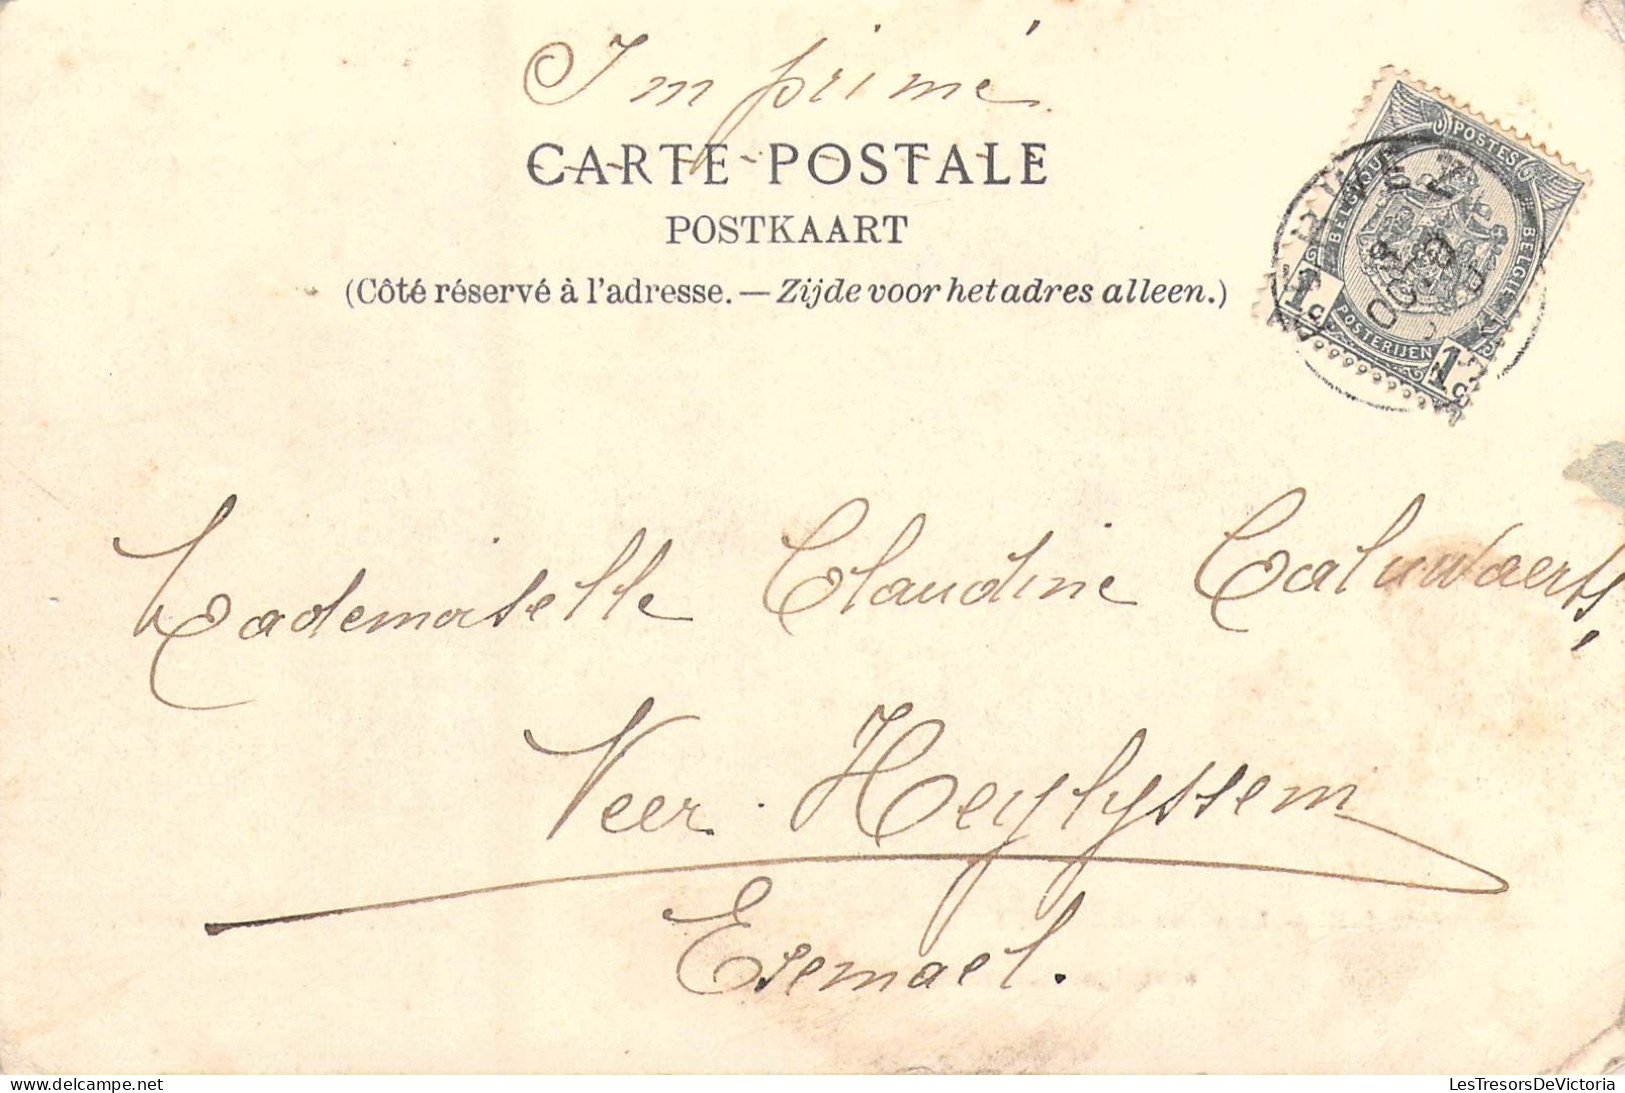 Imprimé
CARTE POSTALE
POSTKAART
(Côté réservé à l'adresse. — Zijde voor het adres alleen.)
POSTES
BELGIQUE
BELGIE
POSTERIJEN
1c
1c
Mademoiselle Claudine Caluwaerts,
Neer. Heylyssem
Esemael.
LesTresorsDeVictoria